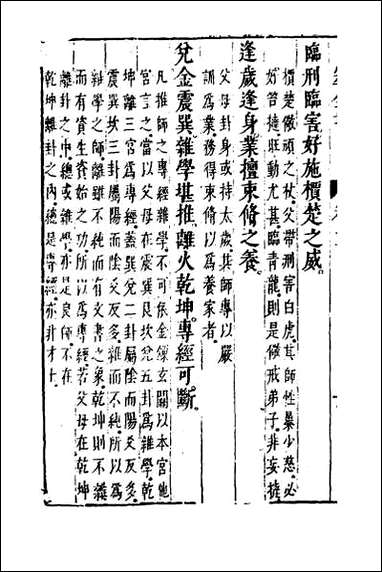 臨刑臨害好施檟楚之威。
檟楚儆頑之杖。父帶刑害白虎。其師性暴少慈。必
好笞撻。旺動尤甚。臨青龍。則是儆戒弟子。非妄撻
逢歲逢身業擅束脩之養。
父母卦身或持太歲。其師專以嚴
訓爲業。務得束脩以爲養家者。
兌金震巽雜學堪推。離火乾坤專經可斷。
凡推師之專經雜學。不可依金鎖玄關。以本宮他
宮言之。當以父母在震巽艮坎兌五卦爲雜學。乾
坤離三宮爲專經。蓋巽兌二卦屬陰而陽爻反多。
震艮坎三卦屬陽而陰爻反多。雜而不純。所以爲
雜學之師。離雖不純。而有文書之象。乾坤則不雜
而有資生資始之功。所以爲專經。若父母在乾坤
離卦之中。總或雜學。亦是良師。不在
乾坤離卦之內。總是專經。亦非才士。